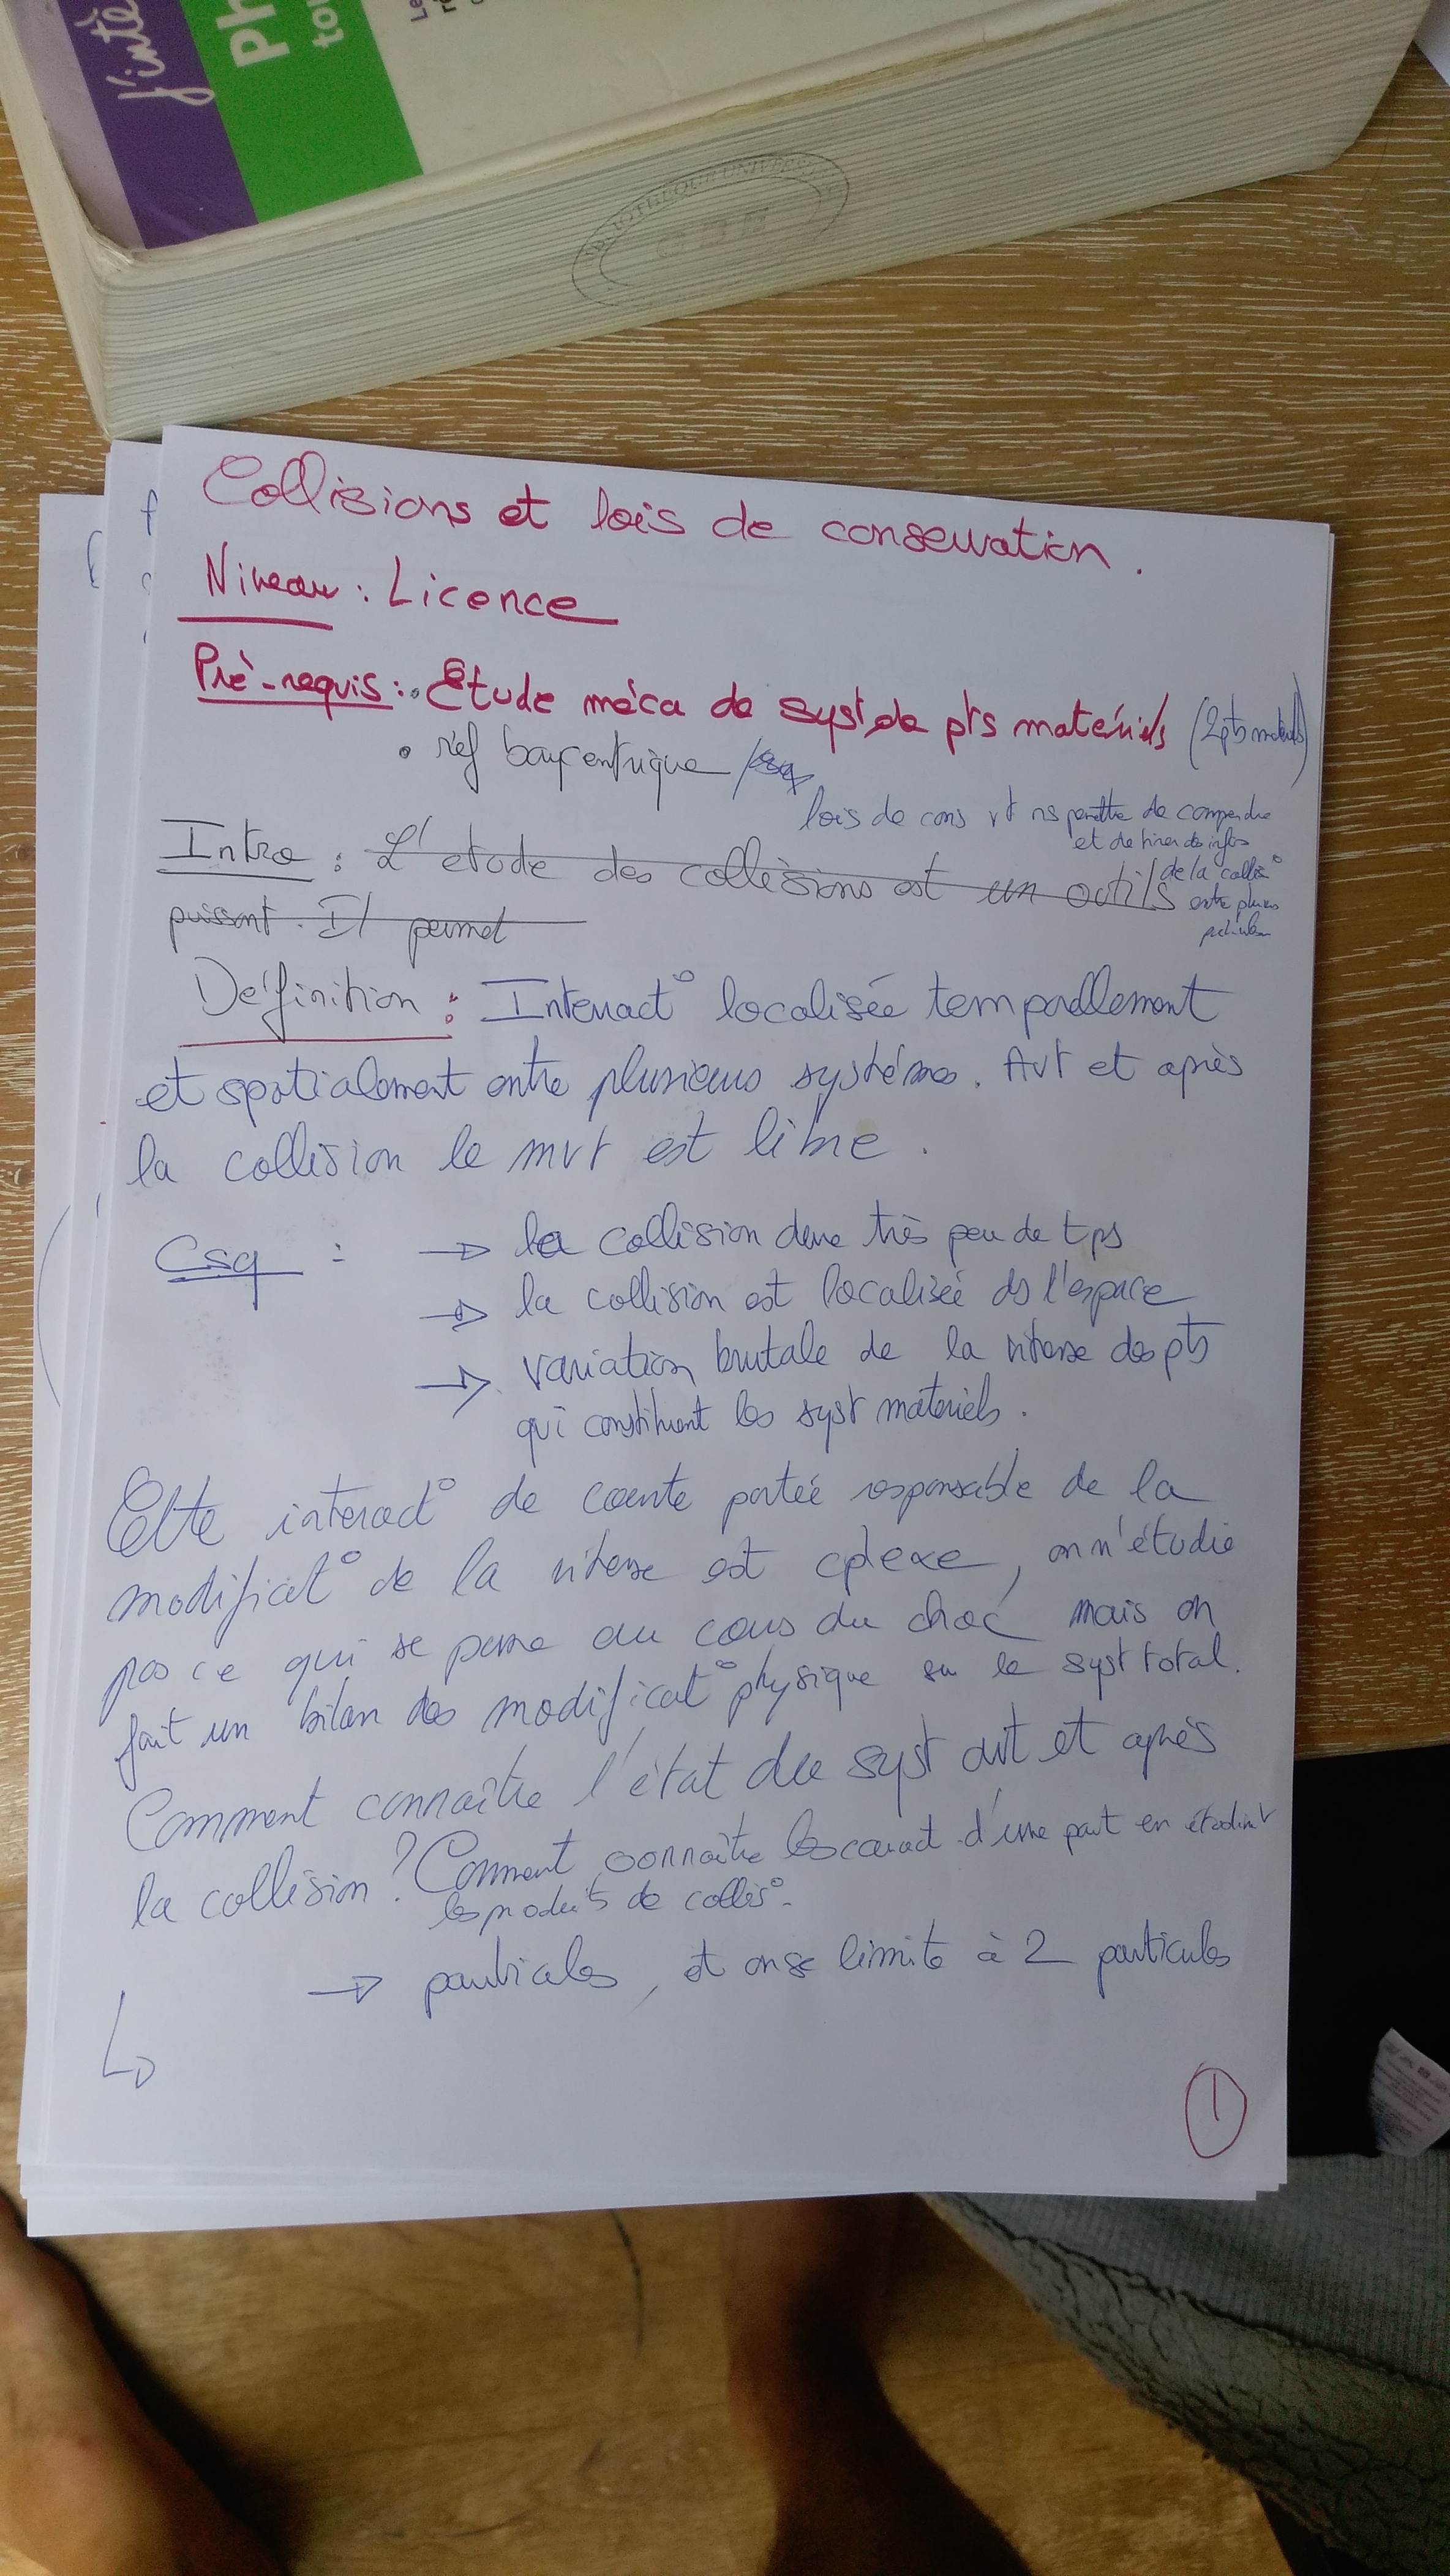 j'intè
Ph
tou
Le
BIBLIOTHEQUE UNIVERS
Collisions et lois de conservation.
Niveau : Licence
Pré-requis : • Etude méca de syst de pts matériels (2 pts matériels)
• réf barycentrique
lois de cons vt ns permettre de comprendre
et de tirer des infos
de la collis°
entre plusieurs
particules
Intro : L'etude des collisions est un outils
puissant. Il permet
Définition : Interact° localisée temporellement
et spatialement entre plusieurs systémes. Avt et après
la collision le mvt est libre.
Csq : → la collision dure très peu de tps
→ la collision est localisée ds l'espace
→ variation brutale de la vitesse des pts
qui constituent les syst matériels.
Cette interact° de courte portée responsable de la
modificat° de la vitesse est cplexe, on n'étudie
pas ce qui se passe au cours du choc mais on
fait un bilan des modificat° physique su le syst total.
Comment connaître l'état du syst avt et après
la collision ? Comment connaître les caract d'une part en étudiant
les produits de collis°.
→ particules, et on se limite à 2 particules
1